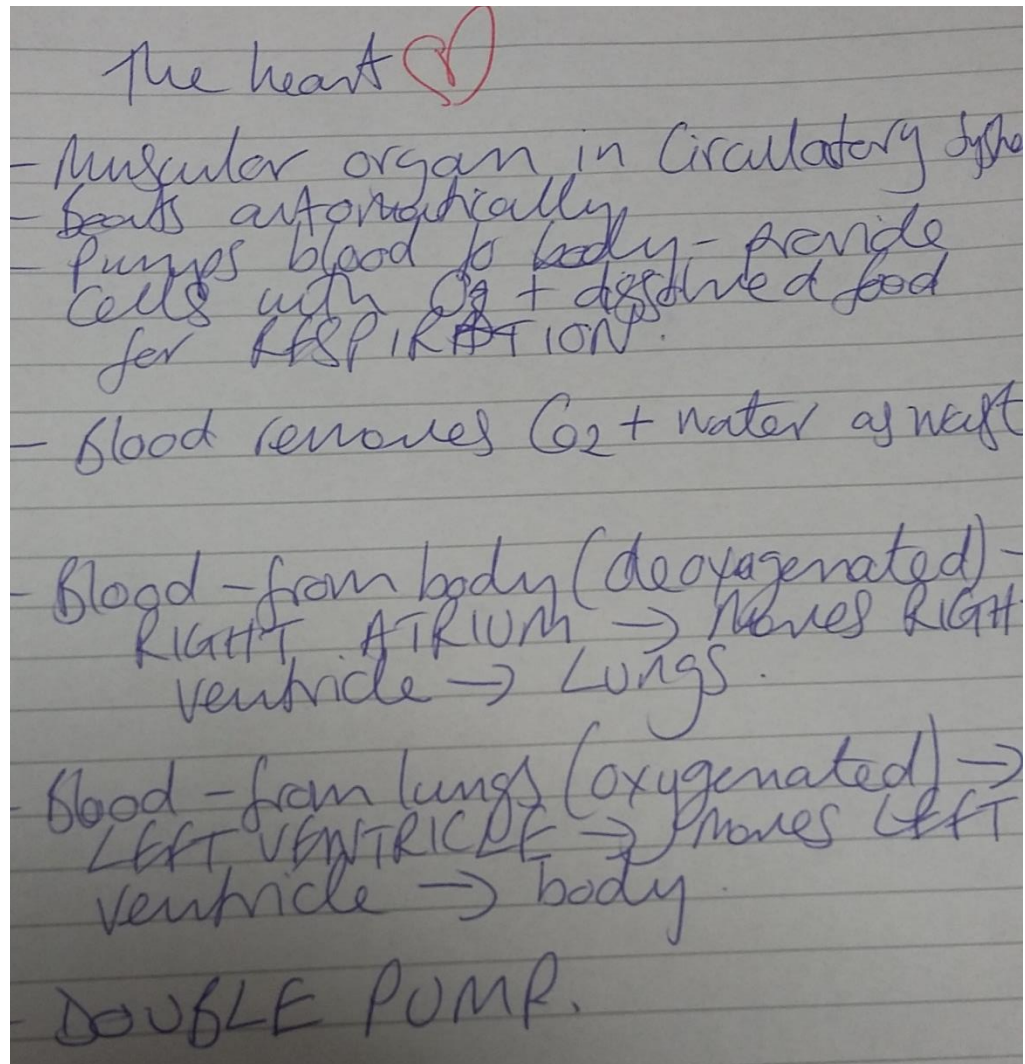 The heart
- Muscular organ in Circulatory syste
- beats automatically
- Pumps blood to body - provide
cells with O2 + dissolved food
for RESPIRATION.
- Blood removes CO2 + water as wast
- Blood - from body (deoxagenated) -
RIGHT ATRIUM → Moves RIGH
ventricle → Lungs.
- Blood - from lungs (oxygenated) →
LEFT VENTRICLE → moves LEFT
ventricle → body.
- DOUBLE PUMP.